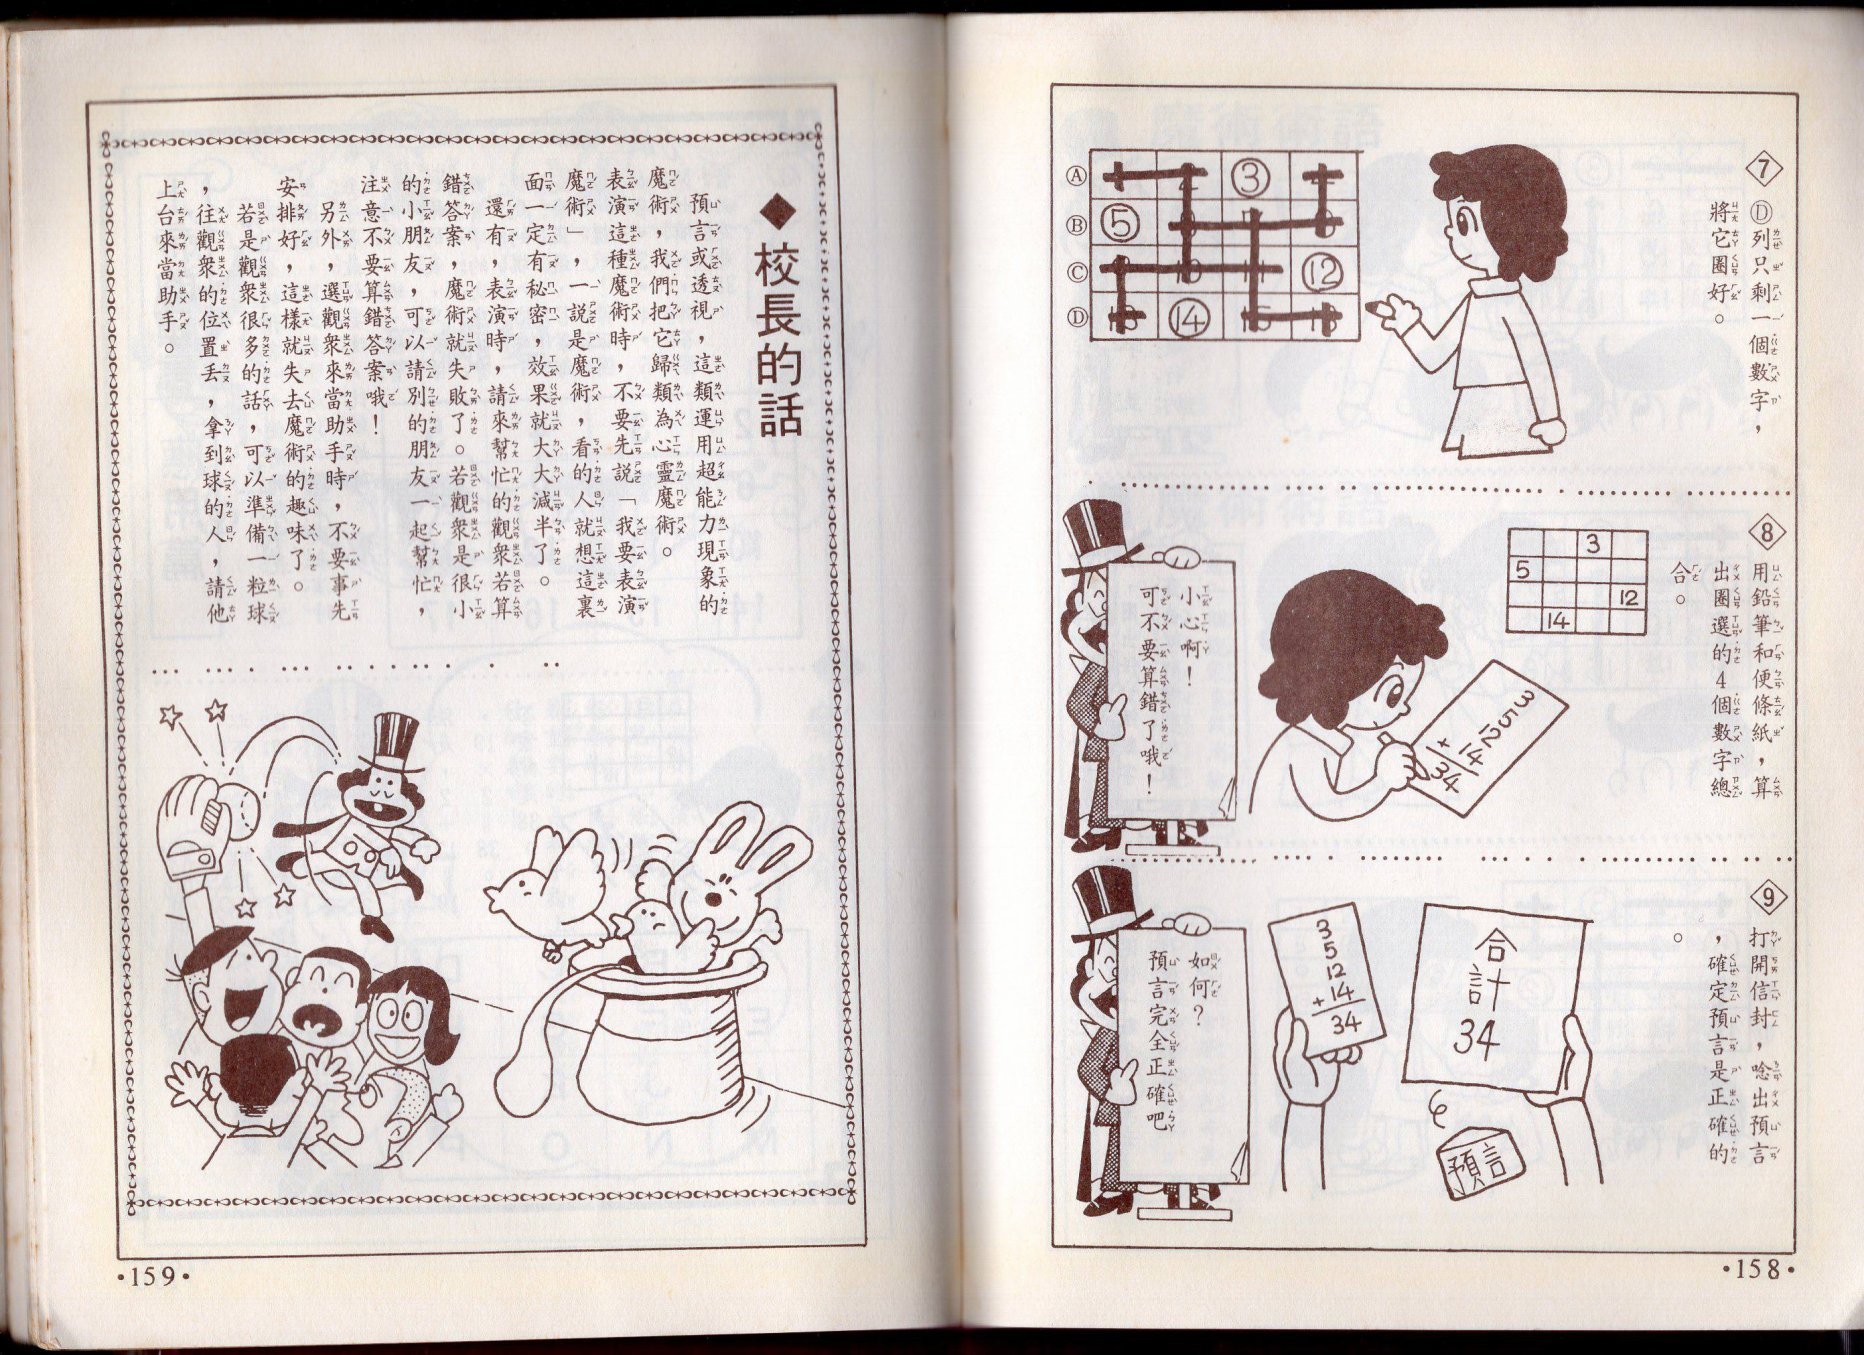 7
Ⓓ列只剩一個數字，
將它圈好。
Ⓐ
③
Ⓑ
⑤
Ⓒ
⑫
Ⓓ
⑭
8
用鉛筆和便條紙，算
出圈選的4個數字總
合。
3
5
12
14
3
5
12
+14
34
小心啊！
可不要算錯了哦！
9
打開信封，唸出預言
，確定預言是正確的
。
合計
34
3
5
12
+14
34
預言
如何？
預言完全正確吧
•158•
◆校長的話
預言或透視，這類運用超能力現象的
魔術，我們把它歸類為心靈魔術。
表演這種魔術時，不要先說「我要表演
魔術」，一說是魔術，看的人就想這裏
面一定有秘密，效果就大大減半了。
還有，表演時，請來幫忙的觀眾若算
錯答案，魔術就失敗了。若觀眾是很小
的小朋友，可以請別的朋友一起幫忙，
注意不要算錯答案哦！
另外，選觀眾來當助手時，不要事先
安排好，這樣就失去魔術的趣味了。
若是觀眾很多的話，可以準備一粒球
，往觀眾的位置丟，拿到球的人，請他
上台來當助手。
•159•